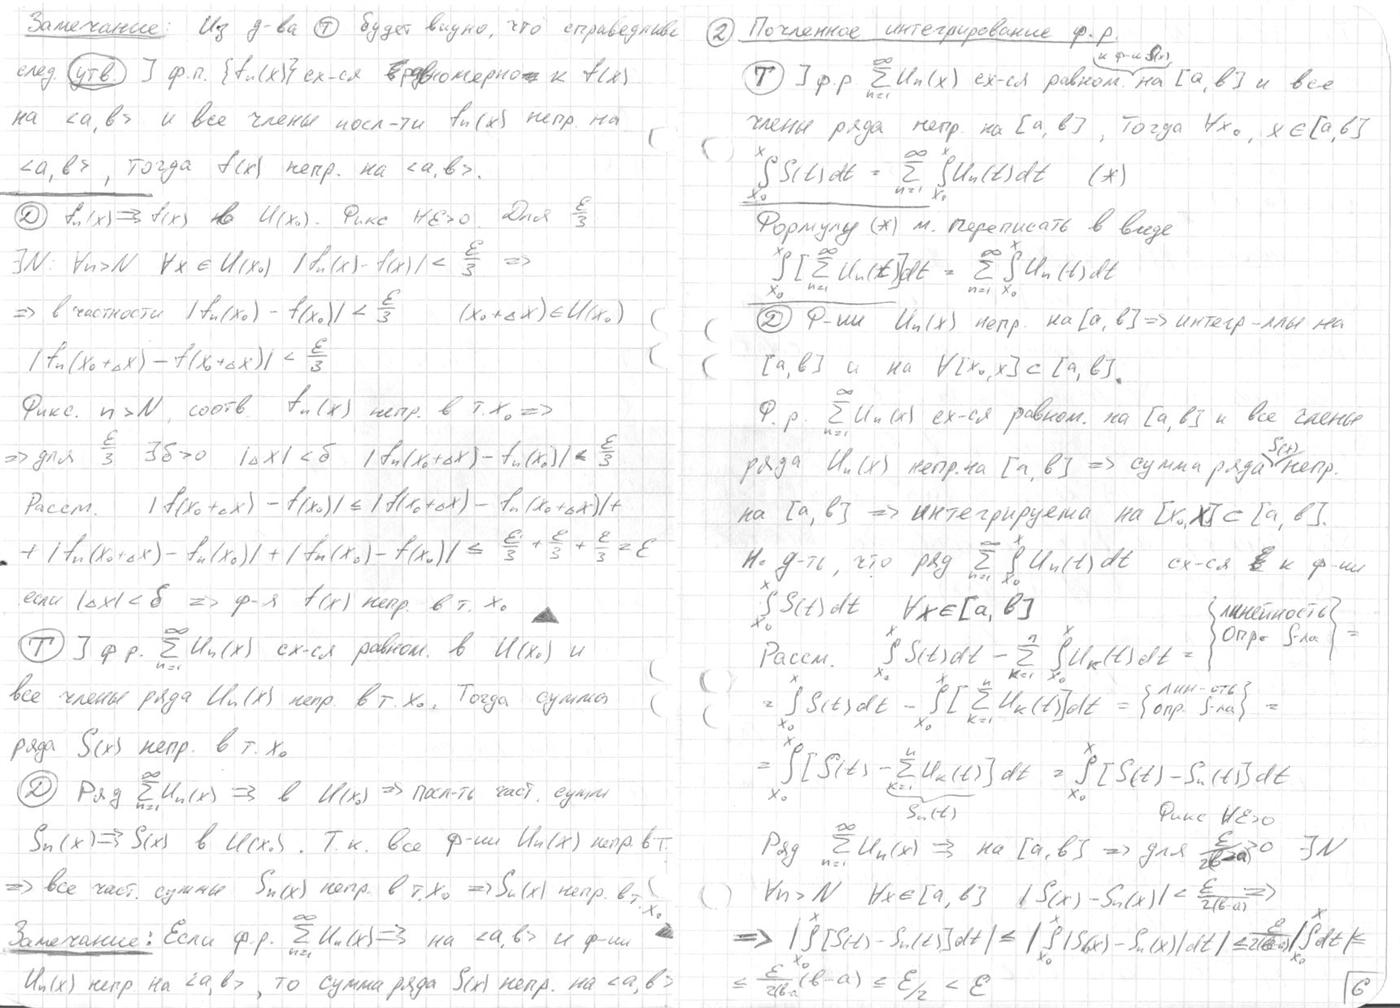 Замечание: Из д-ва Ⓣ будет видно, что справедливо
след. утв. ] ф.п. {fn(x)} сх-ся равномерно к f(x)
на <a,b> и все члены посл-ти fn(x) непр. на
<a,b>, тогда f(x) непр. на <a,b>.
Ⓓ fn(x)⇉f(x) в U(x₀). Фикс ∀ε>0. Для ε/3
∃N: ∀n>N ∀x∈U(x₀) |fn(x)-f(x)|<ε/3 =>
=> в частности |fn(x₀)-f(x₀)|<ε/3 (x₀+Δx)∈U(x₀)
|fn(x₀+Δx)-f(x₀+Δx)|<ε/3
Фикс. n>N, соотв. fn(x) непр. в т. x₀ =>
=> для ε/3 ∃δ>0 |Δx|<δ |fn(x₀+Δx)-fn(x₀)|<ε/3
Рассм. |f(x₀+Δx)-f(x₀)|≤|f(x₀+Δx)-fn(x₀+Δx)|+
+|fn(x₀+Δx)-fn(x₀)|+|fn(x₀)-f(x₀)|≤ε/3+ε/3+ε/3=ε
если |Δx|<δ => ф-я f(x) непр. в т. x₀ ▲
Ⓣ ] ф.р. ∑(n=1,∞) Un(x) сх-ся равном. в U(x₀) и
все члены ряда Un(x) непр. в т. x₀. Тогда сумма
ряда S(x) непр. в т. x₀
Ⓓ Ряд ∑(n=1,∞) Un(x) ⇉ в U(x₀) => посл-ть част. сумм
Sn(x)⇉S(x) в U(x₀). Т.к. все ф-ии Un(x) непр. в т.
=> все част. суммы Sn(x) непр. в т. x₀ => Sn(x) непр. в т. x₀
Замечание: Если ф.р. ∑(n=1,∞) Un(x)⇉ на <a,b> и ф-ии
Un(x) непр на <a,b>, то сумма ряда S(x) непр. на <a,b>
② Почленное интегрирование ф.р.
к ф-ии S(x)
Ⓣ ] ф.р ∑(n=1,∞) Un(x) сх-ся равном. на [a,b] и все
члены ряда непр. на [a,b], тогда ∀x₀, x∈[a,b]
∫(x₀,x) S(t)dt = ∑(n=1,∞) ∫(x₀,x) Un(t)dt (*)
Формулу (*) м. переписать в виде
∫(x₀,x) [∑(n=1,∞) Un(t)]dt = ∑(n=1,∞) ∫(x₀,x) Un(t)dt
Ⓓ Ф-ии Un(x) непр. на [a,b] => интегр-мы на
[a,b] и на ∀[x₀,x]⊂[a,b].
Ф. р. ∑(n=1,∞) Un(x) сх-ся равном. на [a,b] и все члены
ряда Un(x) непр. на [a,b] => сумма ряда S(x) непр.
на [a,b] => интегрируема на [x₀,x]⊂[a,b].
Н. д-ть, что ряд ∑(n=1,∞) ∫(x₀,x) Un(t)dt сх-ся к ф-ии
∫(x₀,x) S(t)dt ∀x∈[a,b]
Рассм. ∫(x₀,x) S(t)dt - ∑(k=1,n) ∫(x₀,x) Uk(t)dt = {линейность опр. ∫-ла} =
= ∫(x₀,x) S(t)dt - ∫(x₀,x) [∑(k=1,n) Uk(t)]dt = {лин-ость опр. ∫-ла} =
= ∫(x₀,x) [S(t) - ∑(k=1,n) Uk(t)]dt = ∫(x₀,x) [S(t)-Sn(t)]dt
Sn(t) Фикс ∀ε>0
Ряд ∑(n=1,∞) Un(x) ⇉ на [a,b] => для ε/2(b-a)>0 ∃N
∀n>N ∀x∈[a,b] |S(x)-Sn(x)|<ε/2(b-a) =>
=> |∫(x₀,x) [S(t)-Sn(t)]dt| ≤ |∫(x₀,x) |S(x)-Sn(x)|dt| ≤ ε/2(b-a) |∫(x₀,x) dt| ≤
≤ ε/2(b-a) (b-a) ≤ ε/2 < ε
6